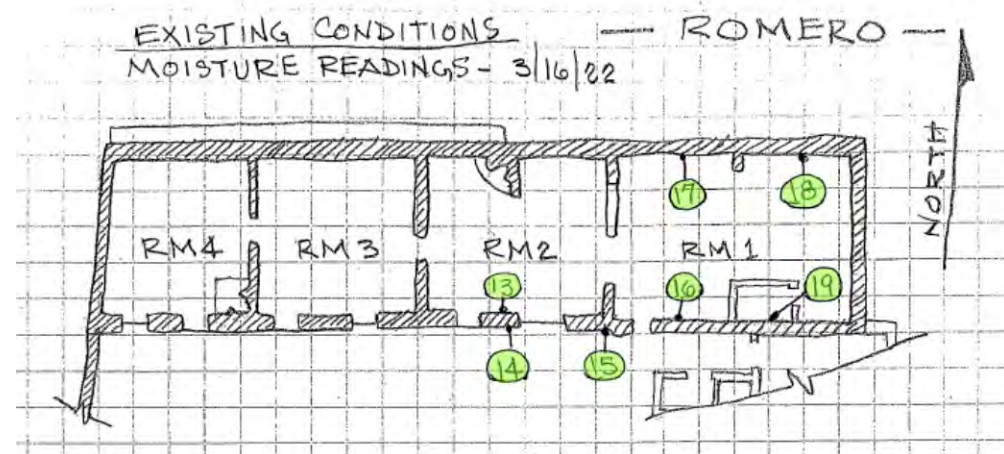 EXISTING CONDITIONS
— ROMERO —
MOISTURE READINGS - 3/16/22
NORTH
17
18
RM4
RM3
RM2
RM1
13
16
19
14
15